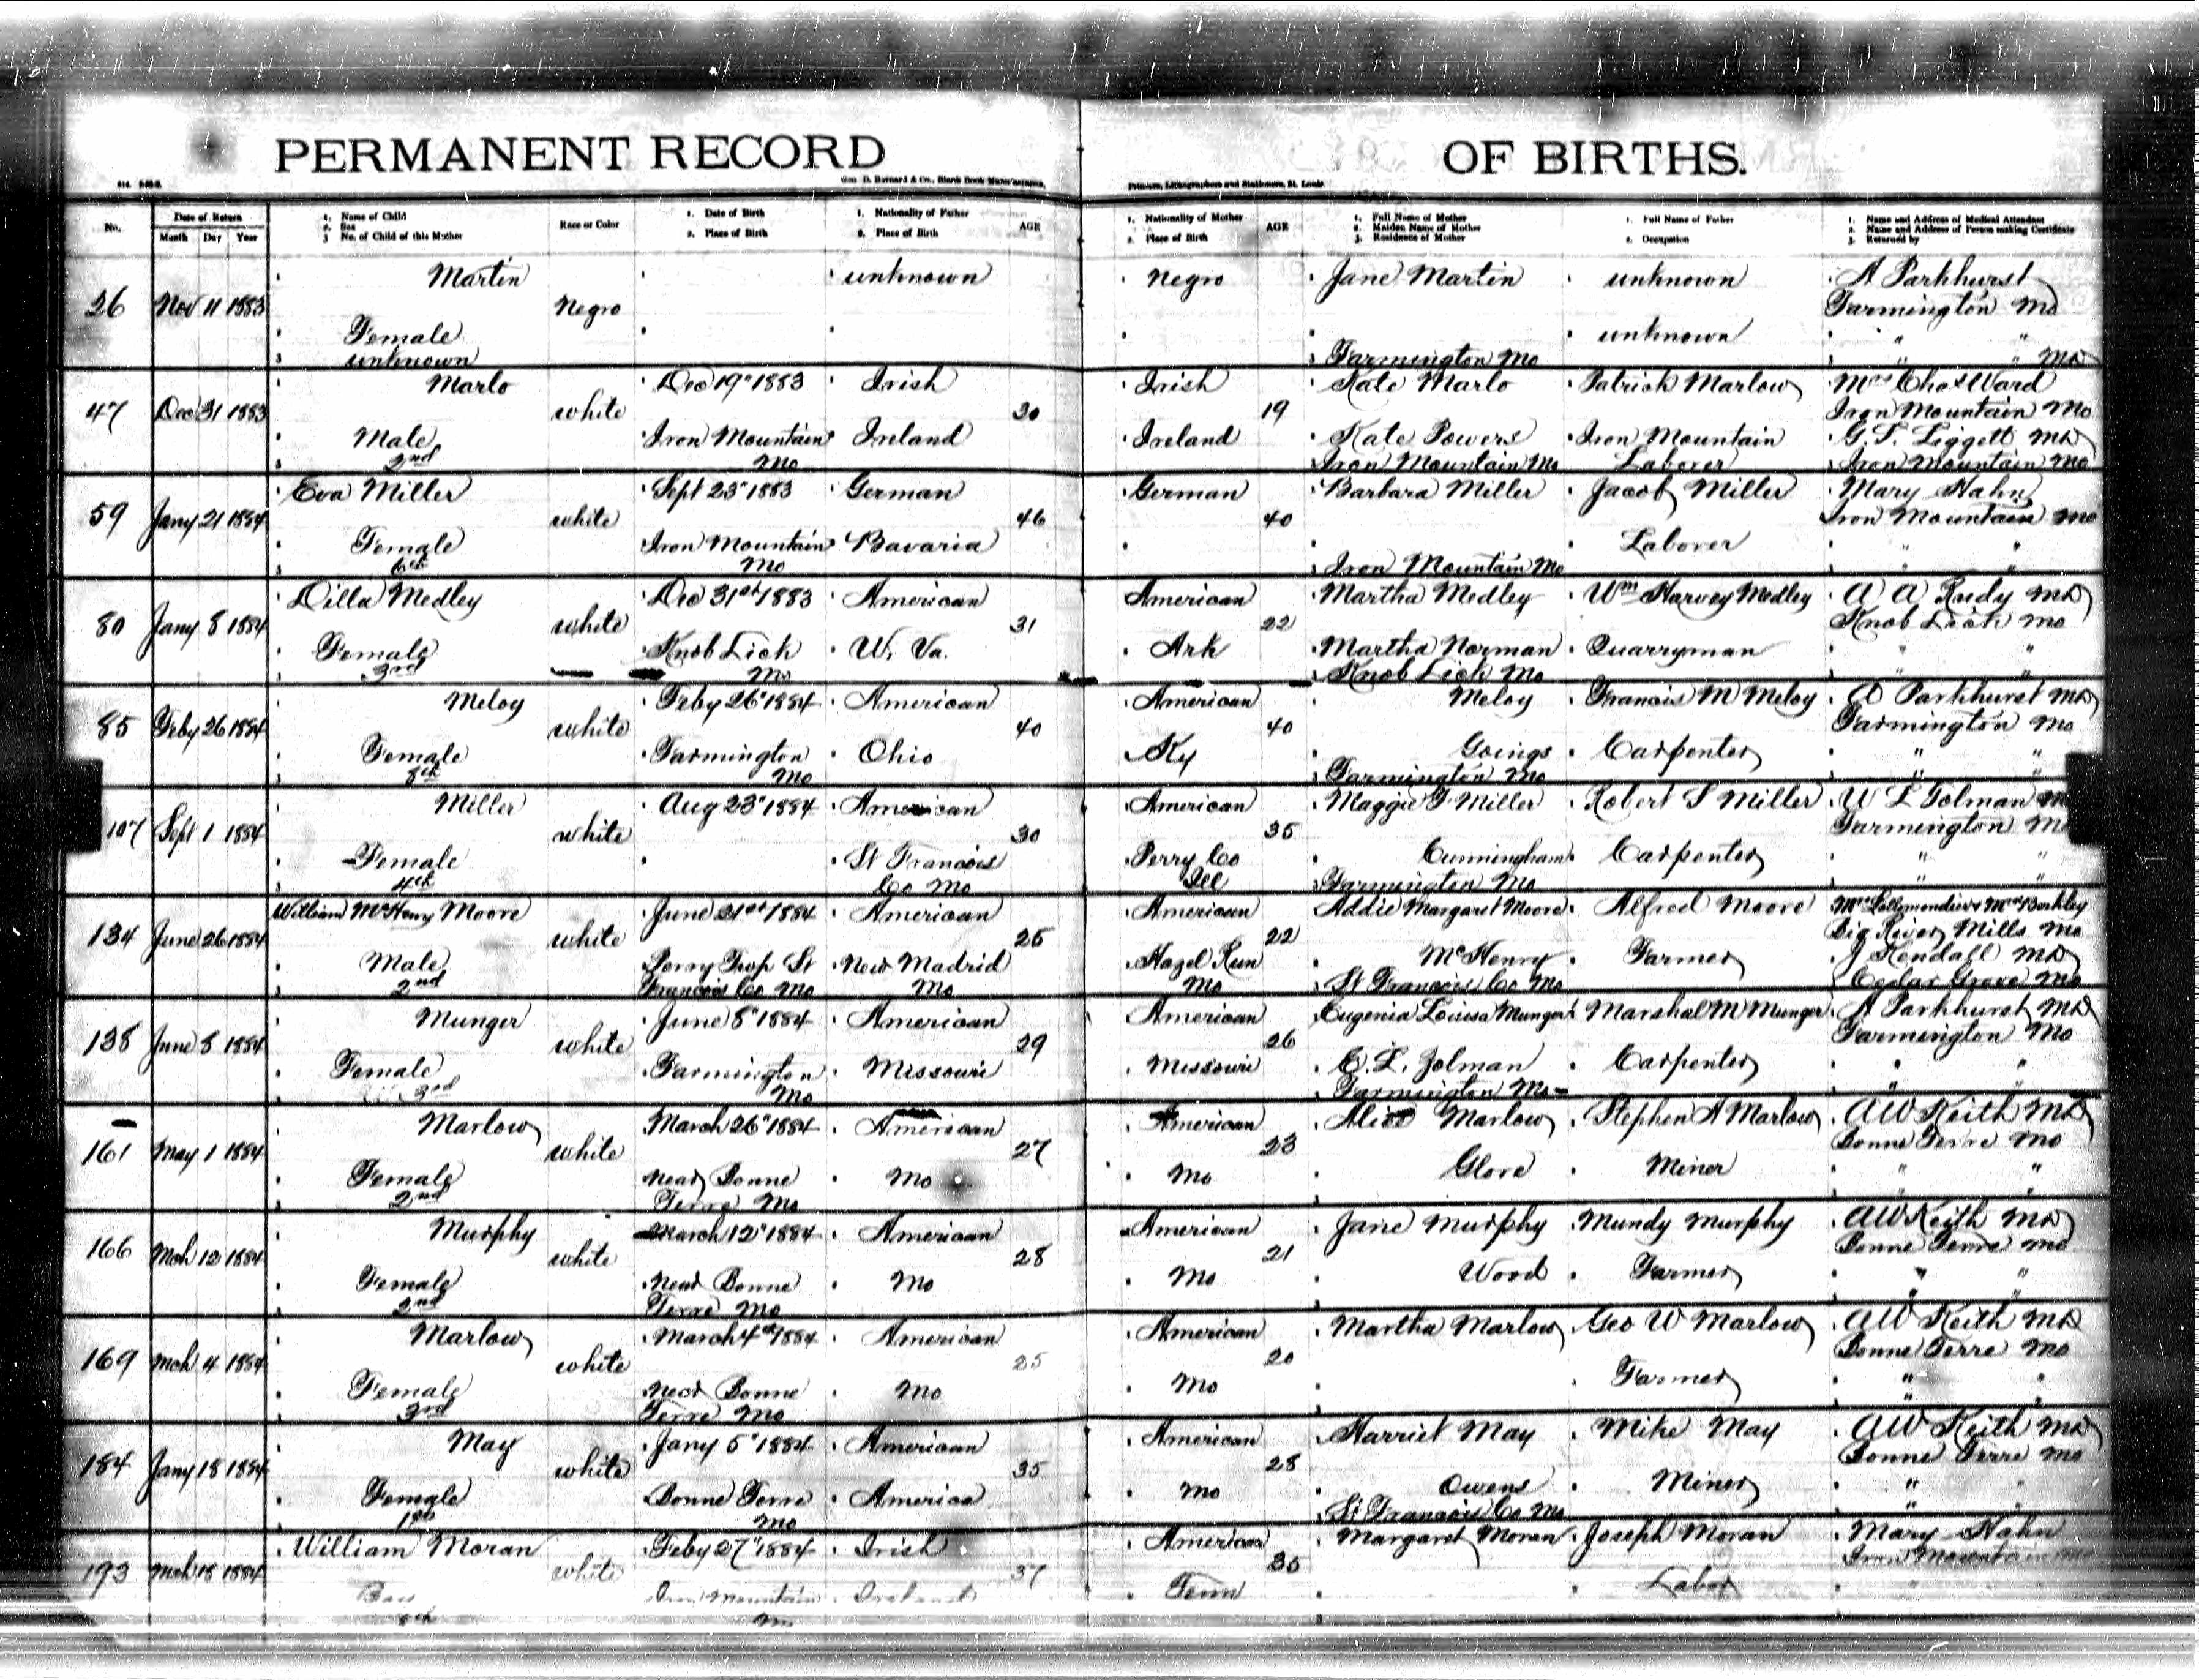 PERMANENT RECORD OF BIRTHS.
Geo. D. Barnard & Co., Blank Book Manufacturers, Printers, Lithographers and Stationers, St. Louis
No. Date of Return 1. Name of Child Race or Color 1. Date of Birth 1. Nationality of Father AGE 1. Nationality of Mother AGE 1. Full Name of Mother 1. Full Name of Father 1. Name and Address of Medical Attendant
Month Day Year 2. Sex 2. Place of Birth 2. Place of Birth 2. Place of Birth 2. Maiden Name of Mother 2. Occupation 2. Name and Address of Person making Certificate
3. No. of Child of this Mother 3. Residence of Mother 3. Returned by
Martin unknown Negro Jane Martin unknown A Parkhurst
26 Nov 11 1883 Negro Farmington Mo
Female unknown " "
unknown Farmington Mo " " MD
Marlo Dec 19" 1883 Irish Irish Kate Marlo Patrick Marlow Mrs Chas Ward
47 Dec 31 1883 white 30 19 Iron Mountain Mo
Male Iron Mountain Ireland Ireland Kate Powers Iron Mountain G. T. Liggett MD
2nd Mo Iron Mountain Mo Laborer Iron Mountain Mo
Eva Miller Sept 23" 1883 German German Barbara Miller Jacob Miller Mary Hahn
59 Jany 21 1884 white 46 40 Iron Mountain Mo
Female Iron Mountain Bavaria Laborer " "
6th Mo Iron Mountain Mo " "
Dilla Medley Dec 31st 1883 American American Martha Medley Wm Harvey Medley A A Rudy MD
80 Jany 8 1884 white 31 22 Knob Lick Mo
Female Knob Lick W. Va. Ark Martha Norman Quarryman " "
3rd Mo Knob Lick Mo " "
Meloy Feby 26" 1884 American American Meloy Francis M Meloy A Parkhurst MD
85 Feby 26 1884 white 40 40 Farmington Mo
Female Farmington Ohio Ky Goings Carpenter " "
8th Mo Farmington Mo " "
Miller Aug 23" 1884 American American Maggie F Miller Robert S Miller W L Tolman
107 Sept 1 1884 white 30 35 Farmington Mo
Female St Francois Perry Co Cunningham Carpenter " "
4th Co Mo Ill Farmington Mo " "
William McHenry Moore June 21st 1884 American American Addie Margaret Moore Alfred Moore
134 June 26 1884 white 25 22 Big River Mills Mo
Male Perry Twp St New Madrid Hazel Run McHenry Farmer J Kendall MD
2nd Francois Co Mo Mo Mo St Francois Co Mo Cedar Grove Mo
Munger June 8" 1884 American American Eugenia Louisa Munger Marshal M Munger A Parkhurst MD
138 June 8 1884 white 29 26 Farmington Mo
Female Farmington Missouri Missouri E. L. Zolman Carpenter " "
3rd Mo Farmington Mo " "
Marlow March 26" 1884 American American Alice Marlow Stephen A Marlow AW Keith MD
161 May 1 1884 white 27 23 Bonne Terre Mo
Female near Bonne Mo Mo Glore Miner " "
2nd Terre Mo " "
Murphy March 12" 1884 American American Jane Murphy Mundy Murphy AW Keith MD
166 Mch 12 1884 white 28 21 Bonne Terre Mo
Female near Bonne Mo Mo Wood Farmer " "
2nd Terre Mo " "
Marlow March 4th 1884 American American Martha Marlow Geo W Marlow AW Keith MD
169 Mch 4 1884 white 25 20 Bonne Terre Mo
Female near Bonne Mo Mo Farmer " "
3rd Terre Mo "
May Jany 5" 1884 American American Harriet May Mike May AW Keith MD
184 Jany 18 1884 white 35 28 Bonne Terre Mo
Female Bonne Terre America Mo Owens Miner " "
1st Mo St Francois Co Mo " "
William Moran Feby 27" 1884 Irish American Margaret Moran Joseph Moran Mary Hahn
193 Mch 18 1884 white 37 35 Iron Mountain Mo
Boy Iron Mountain Ireland Tenn Labor
Mo